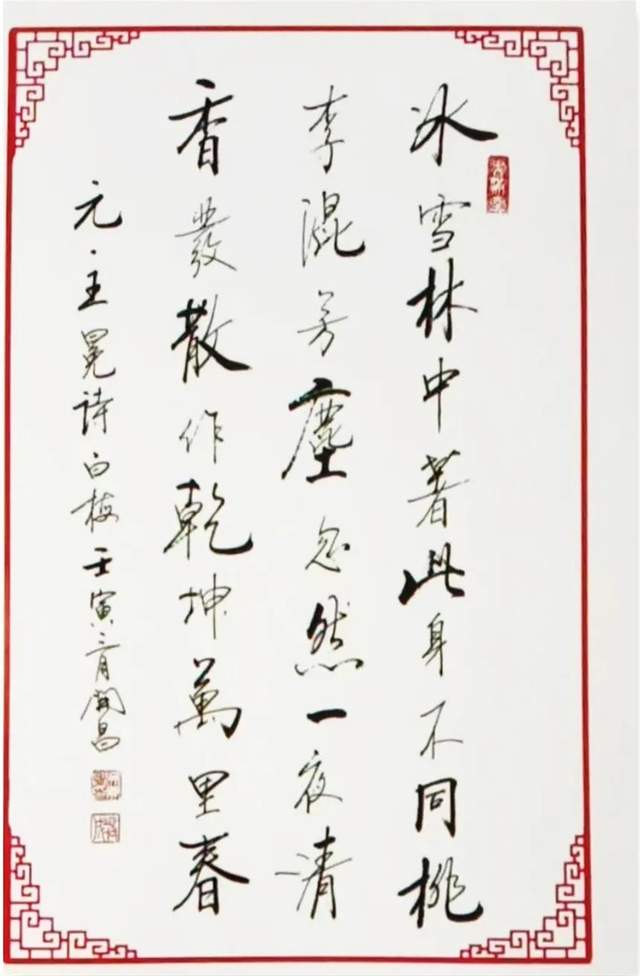 冰雪林中著此身不同桃
李混芳塵忽然一夜清
香發散作乾坤萬里春
元·王冕詩白梅壬寅三月開昌